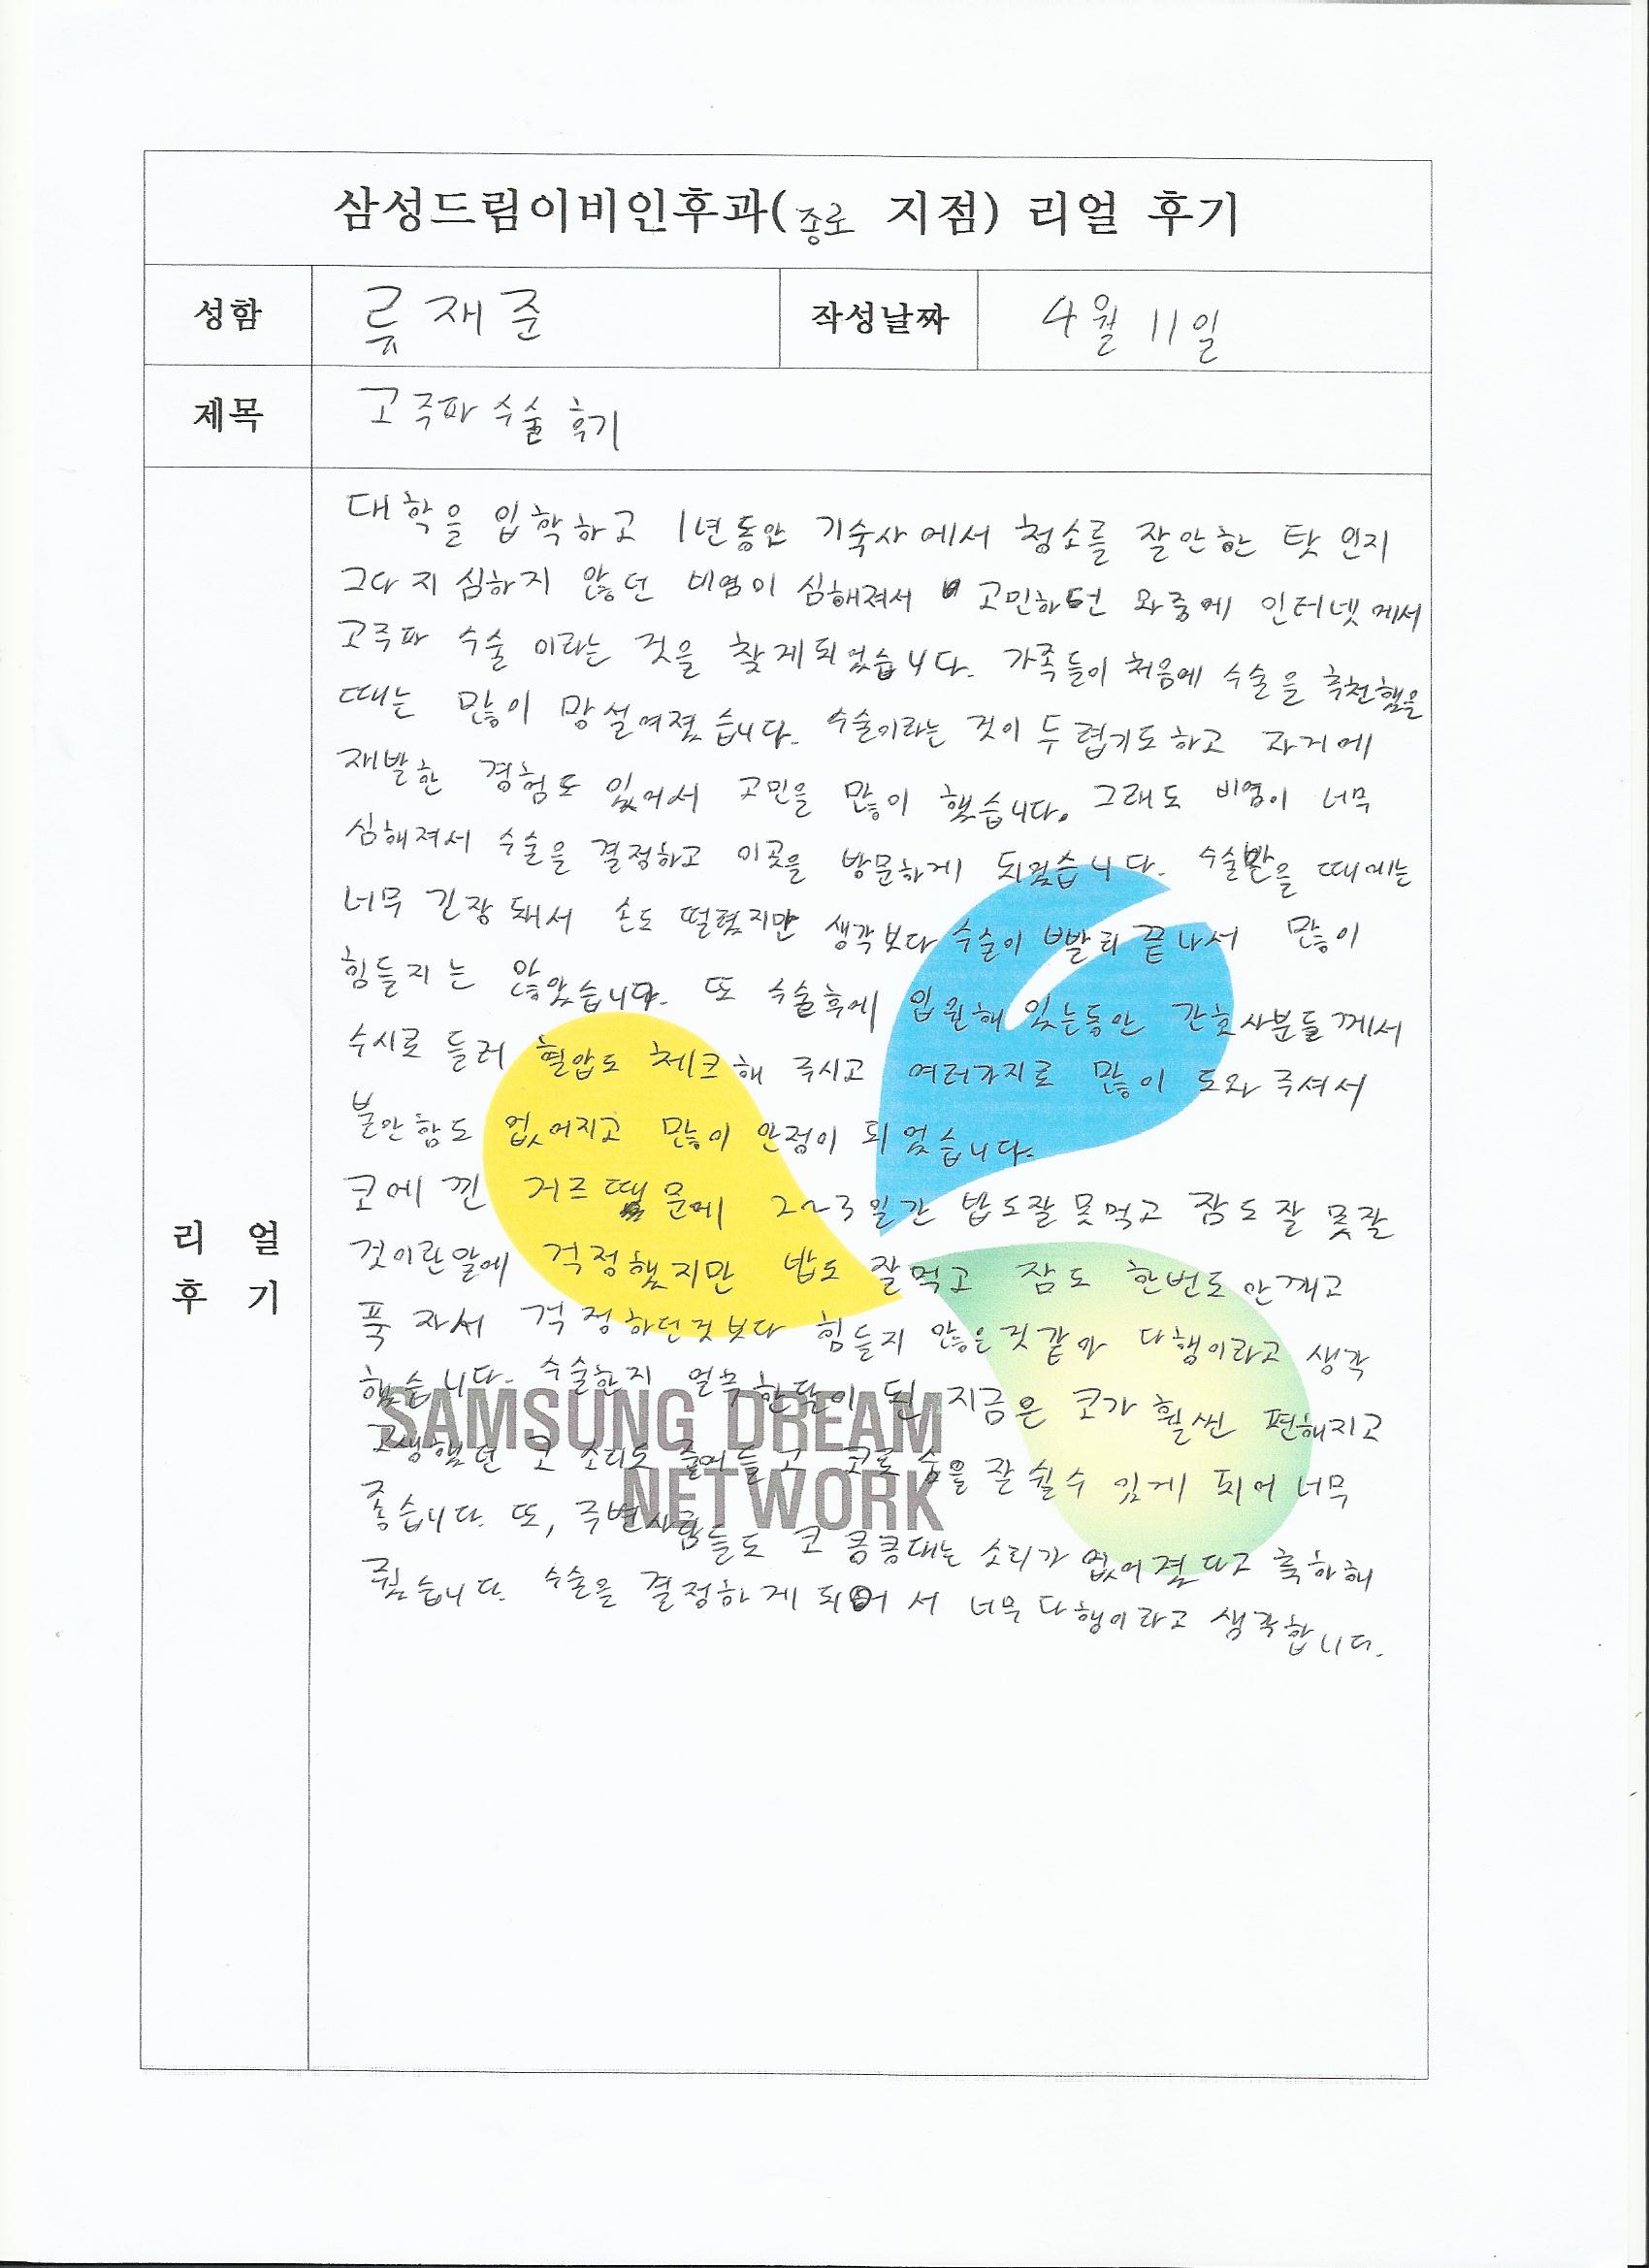 삼성드림이비인후과(종로 지점) 리얼 후기
성함 류재준 작성날짜 4월 11일
제목 고주파 수술 후기
대학을 입학하고 1년동안 기숙사에서 청소를 잘안한 탓 인지
그다지 심하지 않던 비염이 심해져서 고민하던 와중에 인터넷에서
고주파 수술 이라는 것을 찾게되었습니다. 가족들이 처음에 수술을 추천했을
때는 많이 망설여졌습니다. 수술이라는 것이 두렵기도하고 과거에
재발한 경험도 있어서 고민을 많이 했습니다. 그래도 비염이 너무
심해져서 수술을 결정하고 이곳을 방문하게 되었습니다. 수술받을 때에는
너무 긴장돼서 손도 떨렸지만 생각보다 수술이 빨리 끝나서 많이
힘들지는 않았습니다. 또 수술후에 입원해 있는동안 간호사분들께서
수시로 들러 혈압도 체크해 주시고 여러가지로 많이 도와주셔서
불안함도 없어지고 많이 안정이 되었습니다.
코에 낀 거즈때문에 2~3일간 밥도잘못먹고 잠도잘 못잘
것이란말에 걱정했지만 밥도 잘먹고 잠도 한번도안깨고
푹 자서 걱정하던것보다 힘들지 않은것같아 다행이라고 생각
했습니다. 수술한지 얼추한달이 된 지금은 코가 훨씬 편해지고
고생했던 코 소리도 줄어들고 코로 숨을 잘 쉴수 있게 되어 너무
좋습니다. 또, 주변사람들도 코 킁킁대는 소리가 없어졌다고 축하해
줬습니다. 수술을 결정하게 되어서 너무 다행이라고 생각합니다.
리 얼
후 기
SAMSUNG DREAM
NETWORK